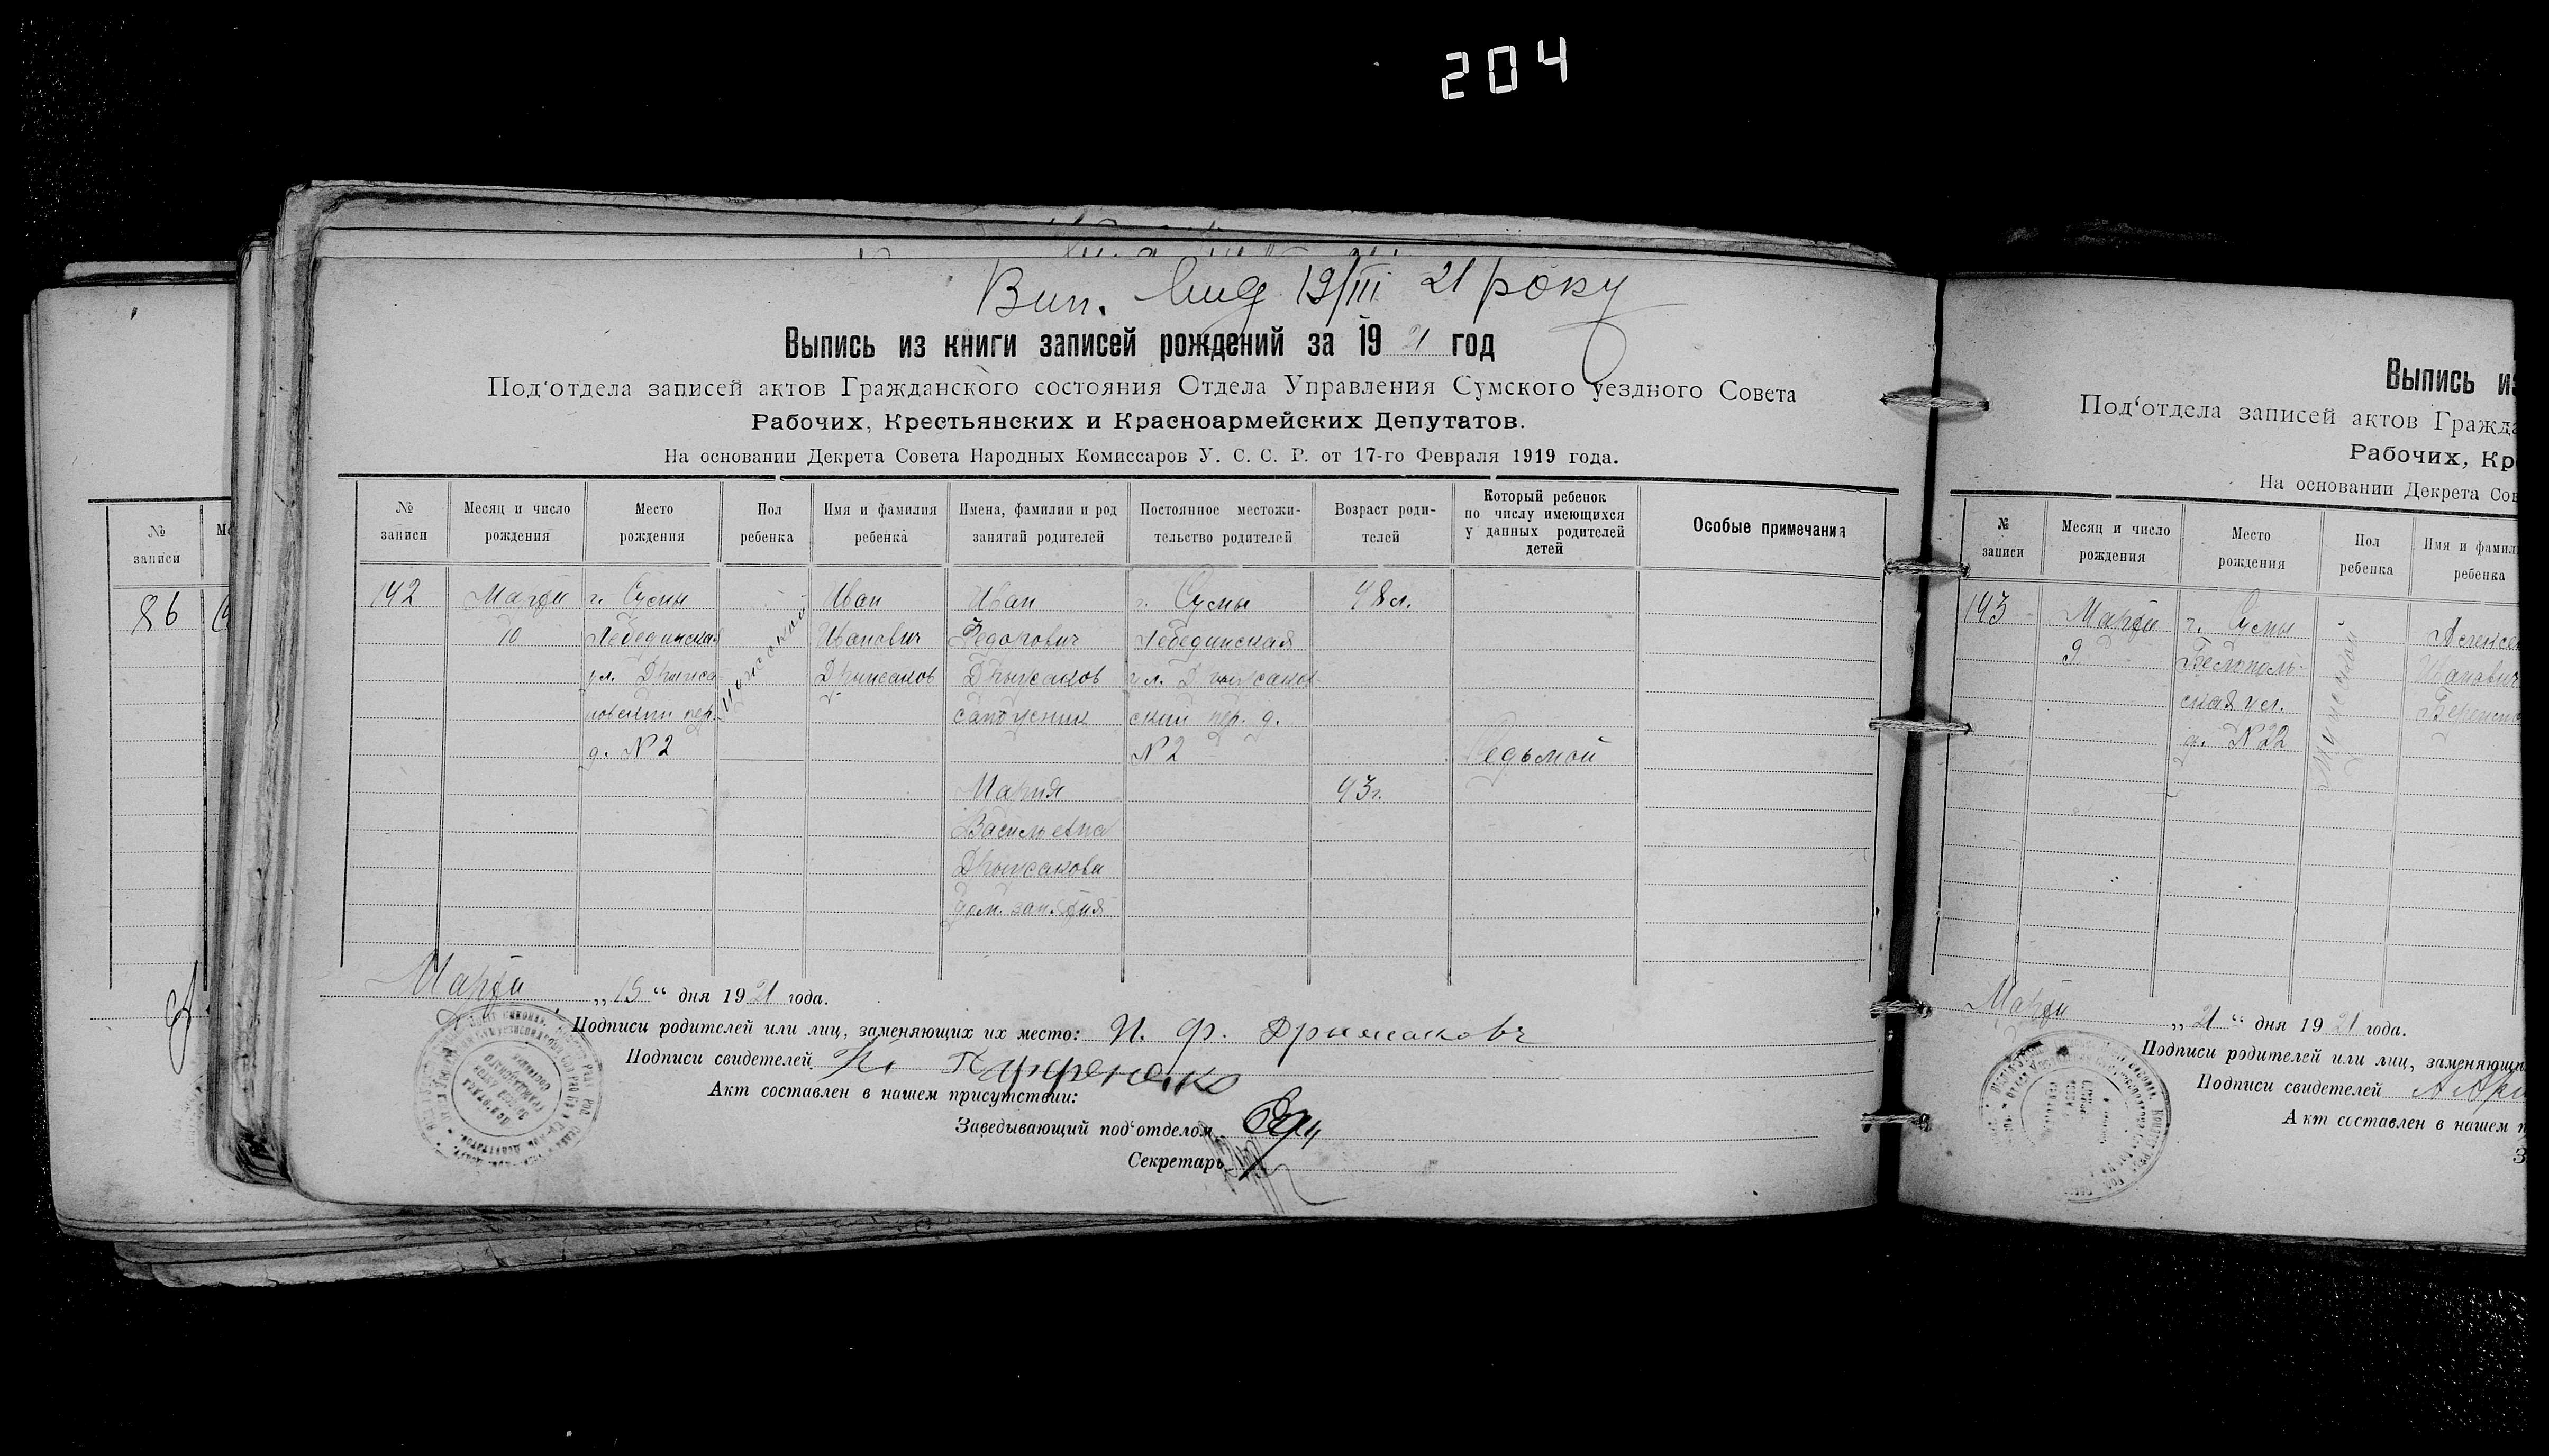 204
Вып. 19/III 21 року
Выпись из книги записей рождений за 1921 год
Под‘отдела записей актов Гражданского состояния Отдела Управления Сумского уездного Совета
Рабочих, Крестьянских и Красноармейских Депутатов.
На основании Декрета Совета Народных Комиссаров У. С. С. Р. от 17-го Февраля 1919 года.
№ записи
Месяц и число рождения
Место рождения
Пол ребенка
Имя и фамилия ребенка
Имена, фамилии и род занятий родителей
Постоянное местожительство родителей
Возраст родителей
Который ребенок по числу имеющихся у данных родителей детей
Особые примечания
142 Марта г. Сумы Иван Иван г. Сумы 48 л.
10 Лебединская мужской Иванович Федорович Лебединская
ул. Дрыжа- Дрыжаков Дрыжаков ул. Дрыжаков-
новский пер. сапожник ский пер. д.
д. №2 №2 Седьмой
Мария 43 г.
Васильевна
Дрыжакова
дом. занятия
Марта „15“ дня 1921 года.
Подписи родителей или лиц, заменяющих их место: И. Ф. Дрыжаковъ
Подписи свидетелей
Акт составлен в нашем присутствии:
Заведывающий под‘отделом
Секретарь
№ записи
86
Выпись из
Под‘отдела записей актов Гражда
Рабочих, Кр
На основании Декрета Сов
№ записи
Месяц и число рождения
Место рождения
Пол ребенка
Имя и фамил ребенка
143 Марта г. Сумы
9 Белополь-
ская ул. мужской
д. №22
Марта „21“ дня 1921 года.
Подписи родителей или лиц, заменяющи
Подписи свидетелей
Акт составлен в нашем п